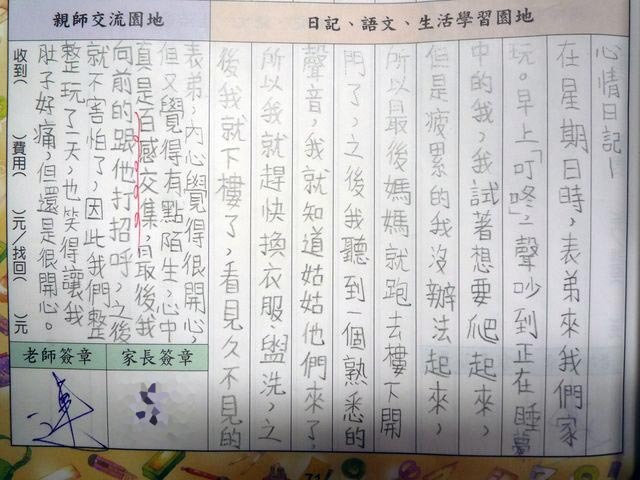 親師交流園地
日記、語文、生活學習園地
心情日記一
在星期日時，表弟來我們家
玩。早上「叮咚」一聲吵到正在睡夢
中的我，我試著想要爬起來，
但是疲累的我沒辦法起來，
所以最後媽媽就跑去樓下開
門了，之後我聽到一個熟悉的
聲音，我就知道姑姑他們來了，
所以我就趕快換衣服、盥洗，之
後我就下樓了，看見久不見的
表弟，內心覺得很開心，
但又覺得有點陌生，心中
真是百感交集，最後我
向前的跟他打招呼，之後
就不害怕了，因此我們整
整玩了一天，也笑得讓我
肚子好痛，但還是很開心。
收到( )費用( )元/找回( )元
老師簽章
家長簽章